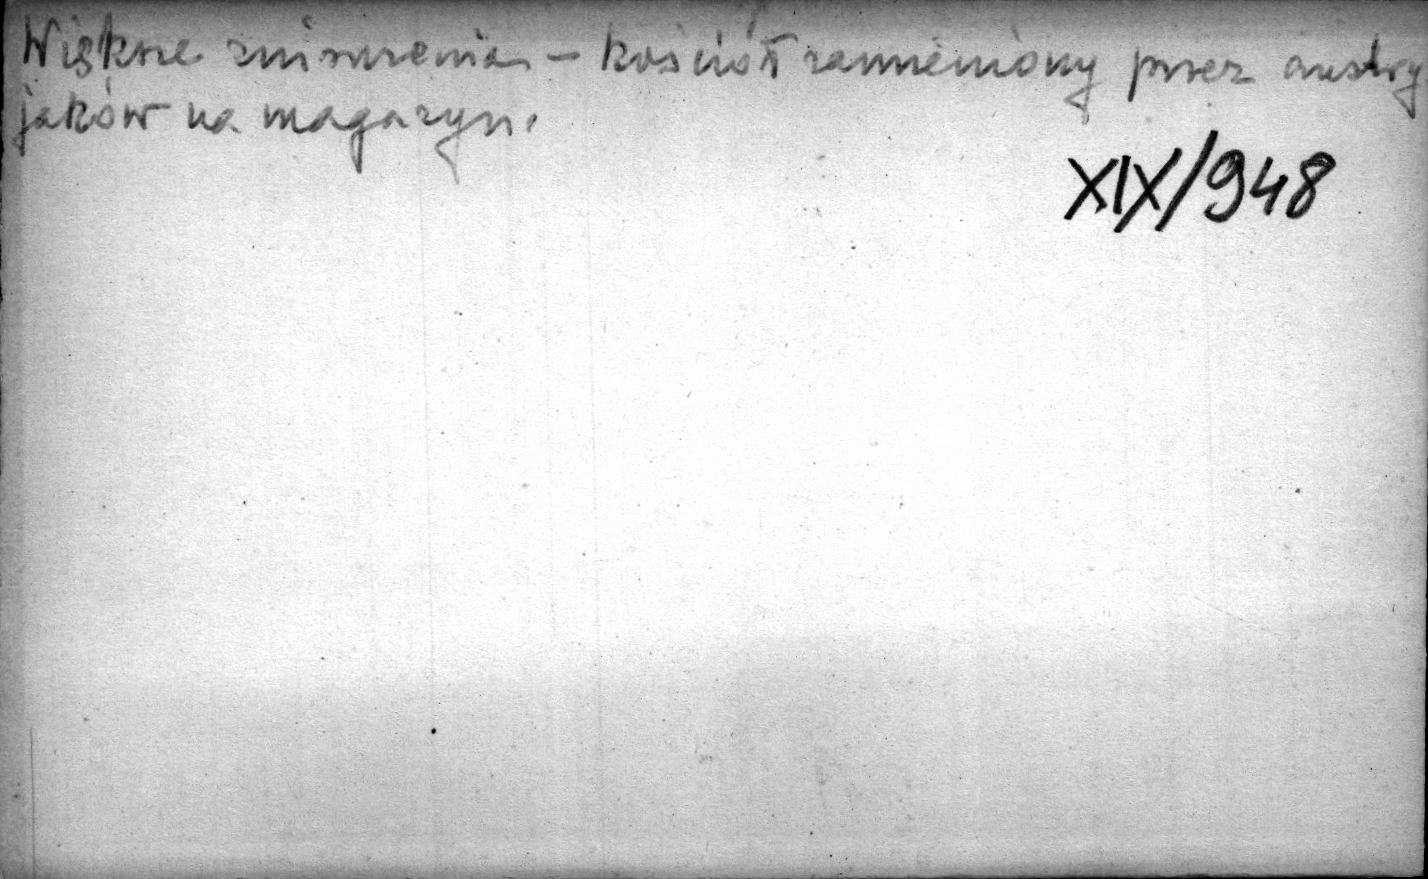 Większe zniszczenia – kościół zamieniony przez austry
jaków na magazyn.
XIX/948